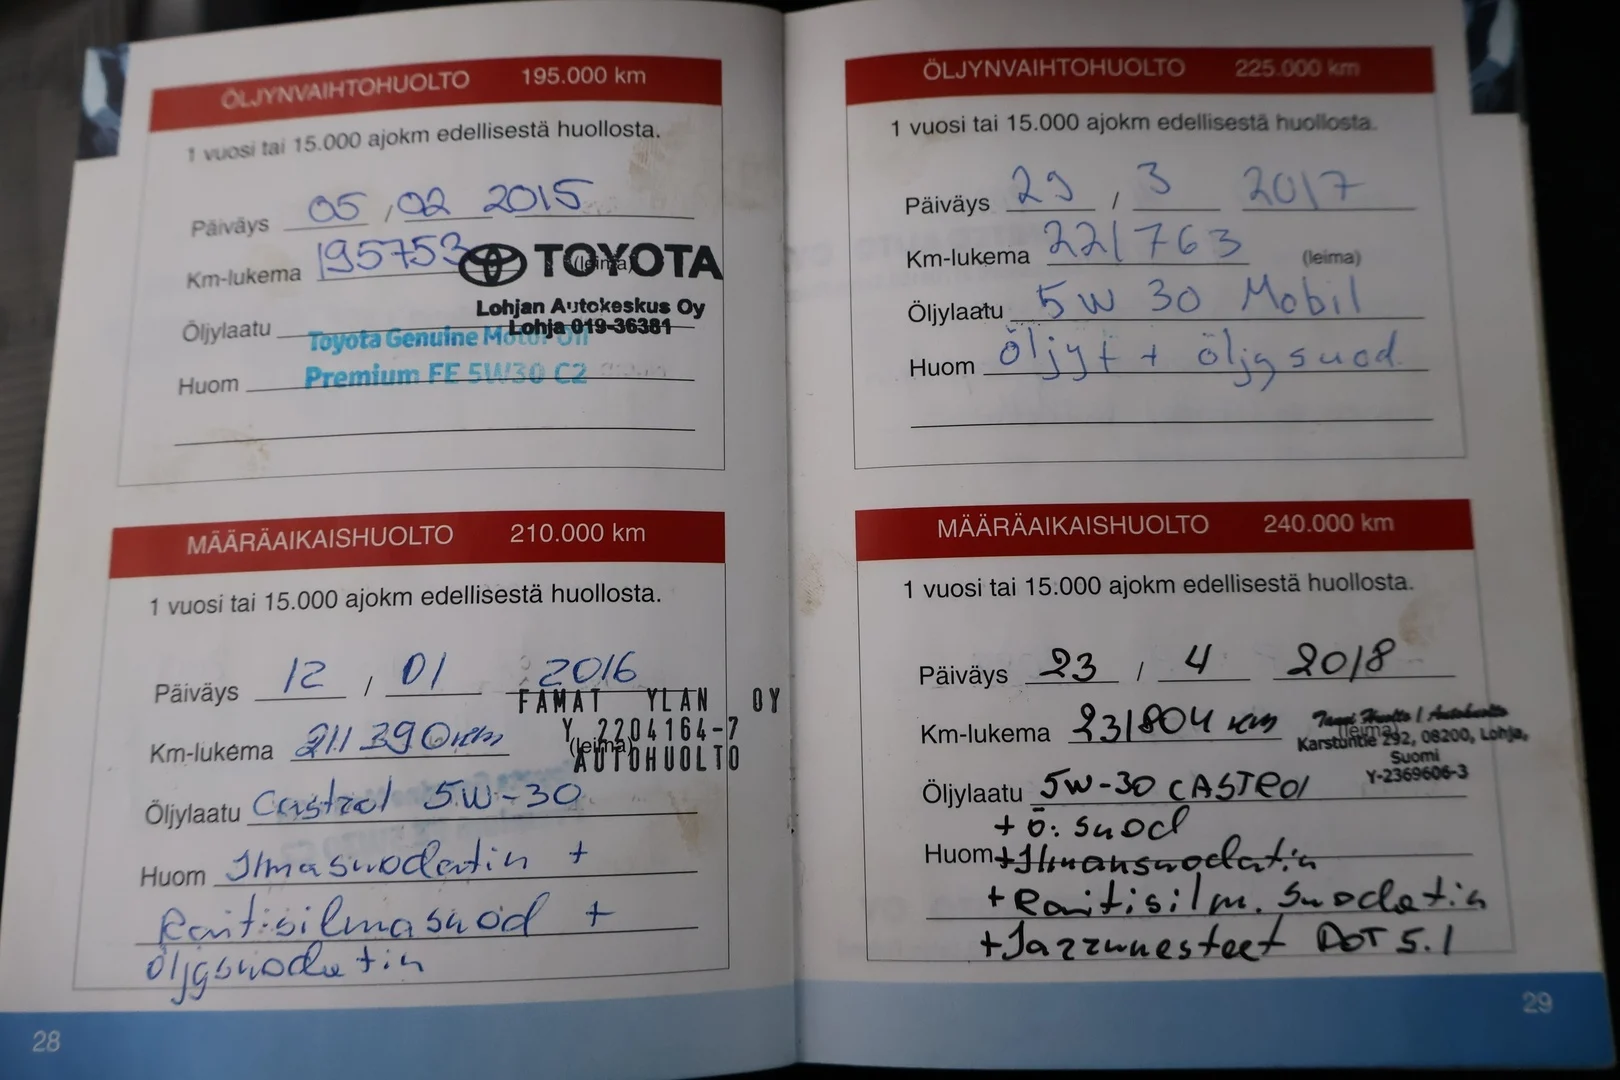 ÖLJYNVAIHTOHUOLTO 195.000 km
1 vuosi tai 15.000 ajokm edellisestä huollosta.
Päiväys 05 , 02 2015
Km-lukema 195753 (leima)
TOYOTA
Lohjan Autokeskus Oy
Lohja 019-36381
Öljylaatu Toyota Genuine Motor Oil
Huom Premium FE 5W30 C2
MÄÄRÄAIKAISHUOLTO 210.000 km
1 vuosi tai 15.000 ajokm edellisestä huollosta.
Päiväys 12 / 01 2016
FAMAT YLAN OY
Y 2204164-7
AUTOHUOLTO
Km-lukema 211390km (leima)
Öljylaatu Castrol 5W-30
Huom Ilmasuodatin +
Raitisilmasuod +
öljysuodatin
28
ÖLJYNVAIHTOHUOLTO 225.000 km
1 vuosi tai 15.000 ajokm edellisestä huollosta.
Päiväys 29 / 3 2017
Km-lukema 221763 (leima)
Öljylaatu 5W 30 Mobil
Huom öljyt + öljysuod.
MÄÄRÄAIKAISHUOLTO 240.000 km
1 vuosi tai 15.000 ajokm edellisestä huollosta.
Päiväys 23 / 4 2018
Km-lukema 231804 km (leima)
Huolto / Autohuolto
Karstuntie 292, 08200, Lohja,
Suomi
Y-2369606-3
Öljylaatu 5W-30 CASTROl
+ ö. suod
Huom +Ilmansuodatin
+Raitisilm. Suodatin
+Jarrunesteet DOT 5.1
29